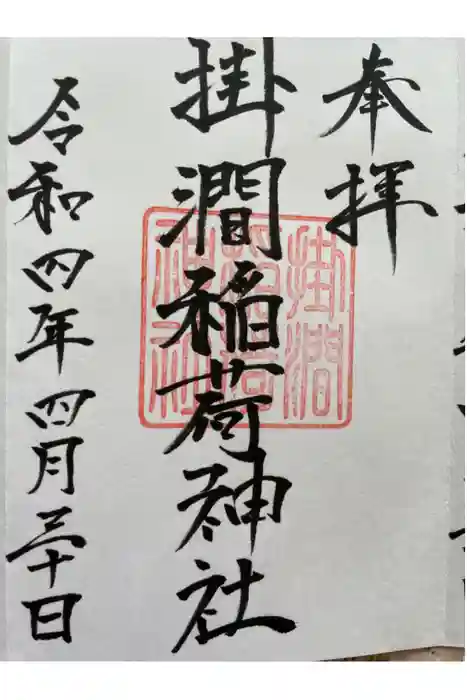 奉拝
掛澗稲荷神社
掛澗稲荷神社
令和四年四月三十日